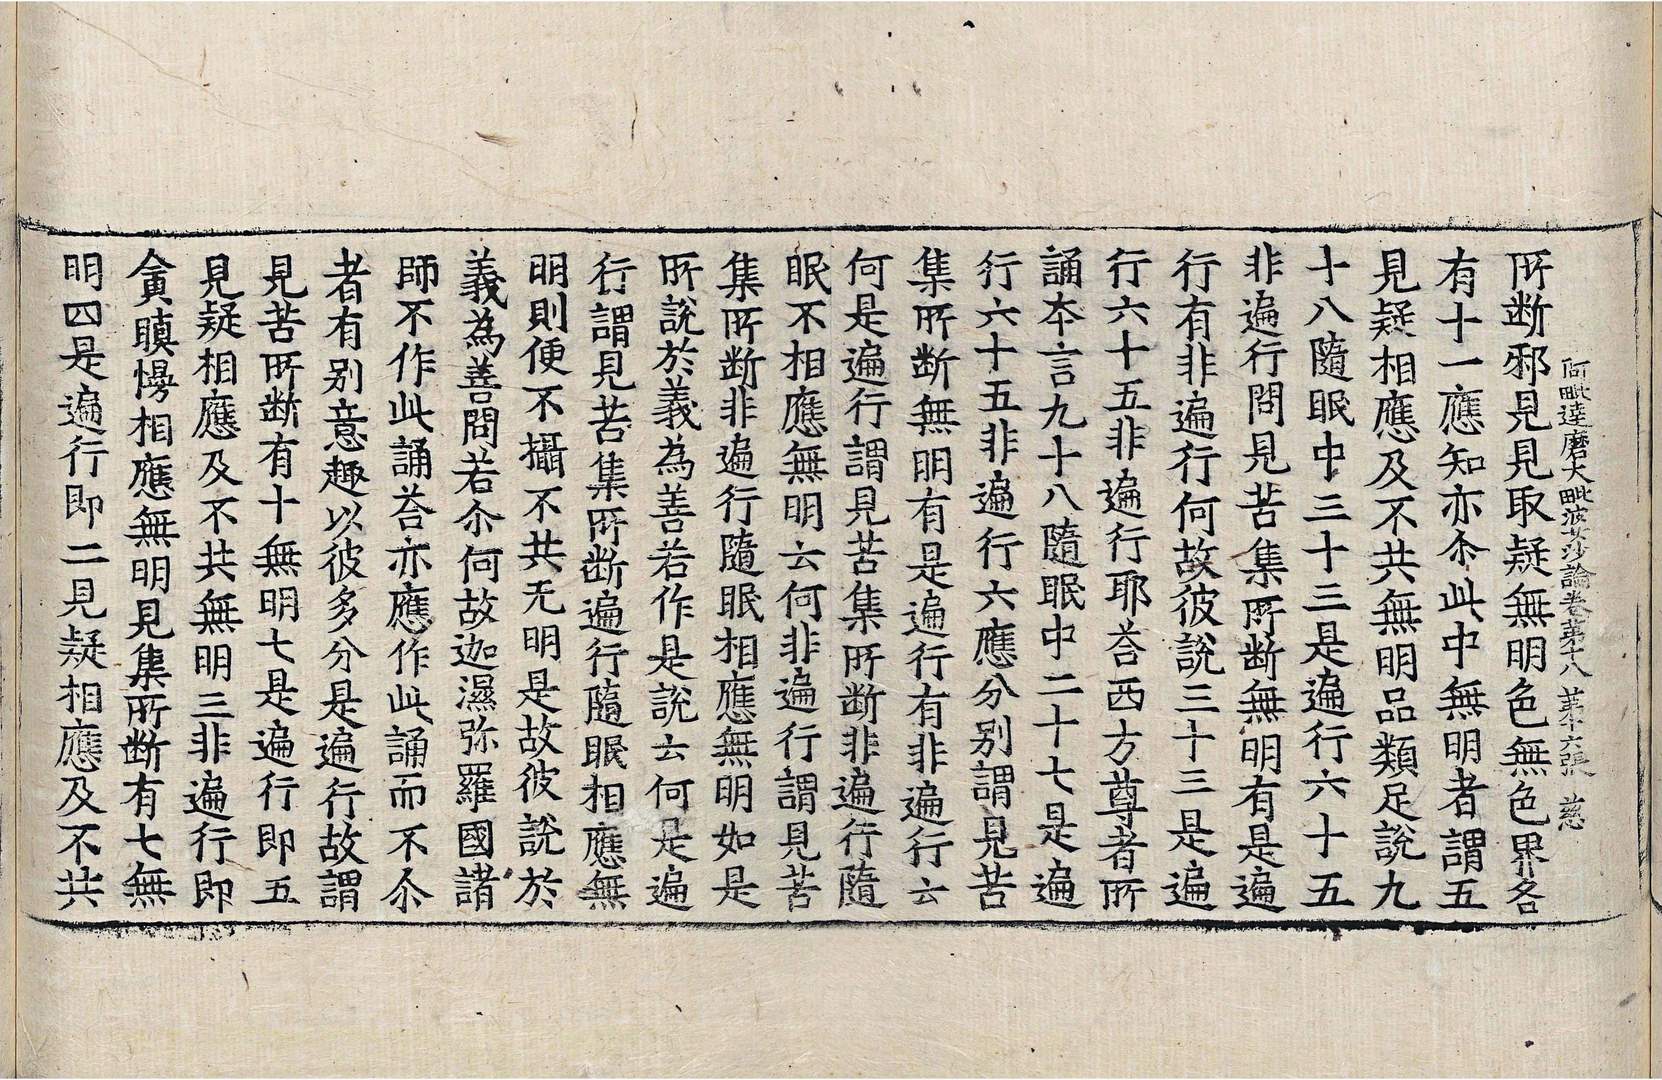 阿毗達磨大毗波女沙論卷第十八 苐十六張 慈
所断邪見見取疑無明色無色界各
有十一應知亦尒此中無明者謂五
見疑相應及不共無明品類足說九
十八隨眠中三十三是遍行六十五
非遍行問見苦集所断無明有是遍
行有非遍行何故彼說三十三是遍
行六十五非遍行耶荅西方尊者所
誦本言九十八隨眠中二十七是遍
行六十五非遍行六應分別謂見苦
集所断無明有是遍行有非遍行云
何是遍行謂見苦集所断非遍行隨
眠不相應無明云何非遍行謂見苦
集所断非遍行隨眠相應無明如是
所說於義為善若作是說云何是遍
行謂見苦集所断遍行隨眠相應無
明則便不攝不共无明是故彼說於
義為善問若尒何故迦濕弥羅國諸
師不作此誦荅亦應作此誦而不尒
者有别意趣以彼多分是遍行故謂
見苦所断有十無明七是遍行即五
見疑相應及不共無明三非遍行即
貪瞋慢相應無明見集所断有七無
明四是遍行即二見疑相應及不共